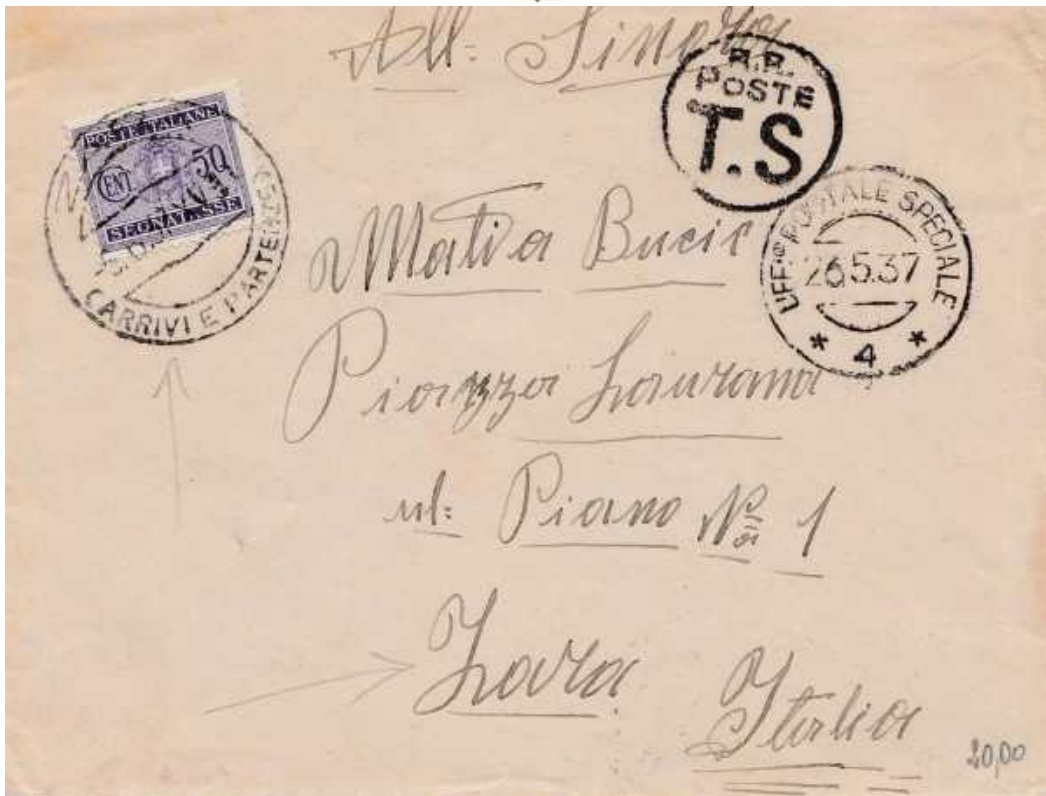 All: Signora
R.R.
POSTE
T.S
POSTE ITALIANE
CENT 50
SEGNAT..SSE
(ARRIVI E PARTENZE)
UFF° POSTALE SPECIALE
26.5.37
* 4 *
Matia Bucic
Piazza Laurana
ul: Piano No 1
Zara
Italia
20,00